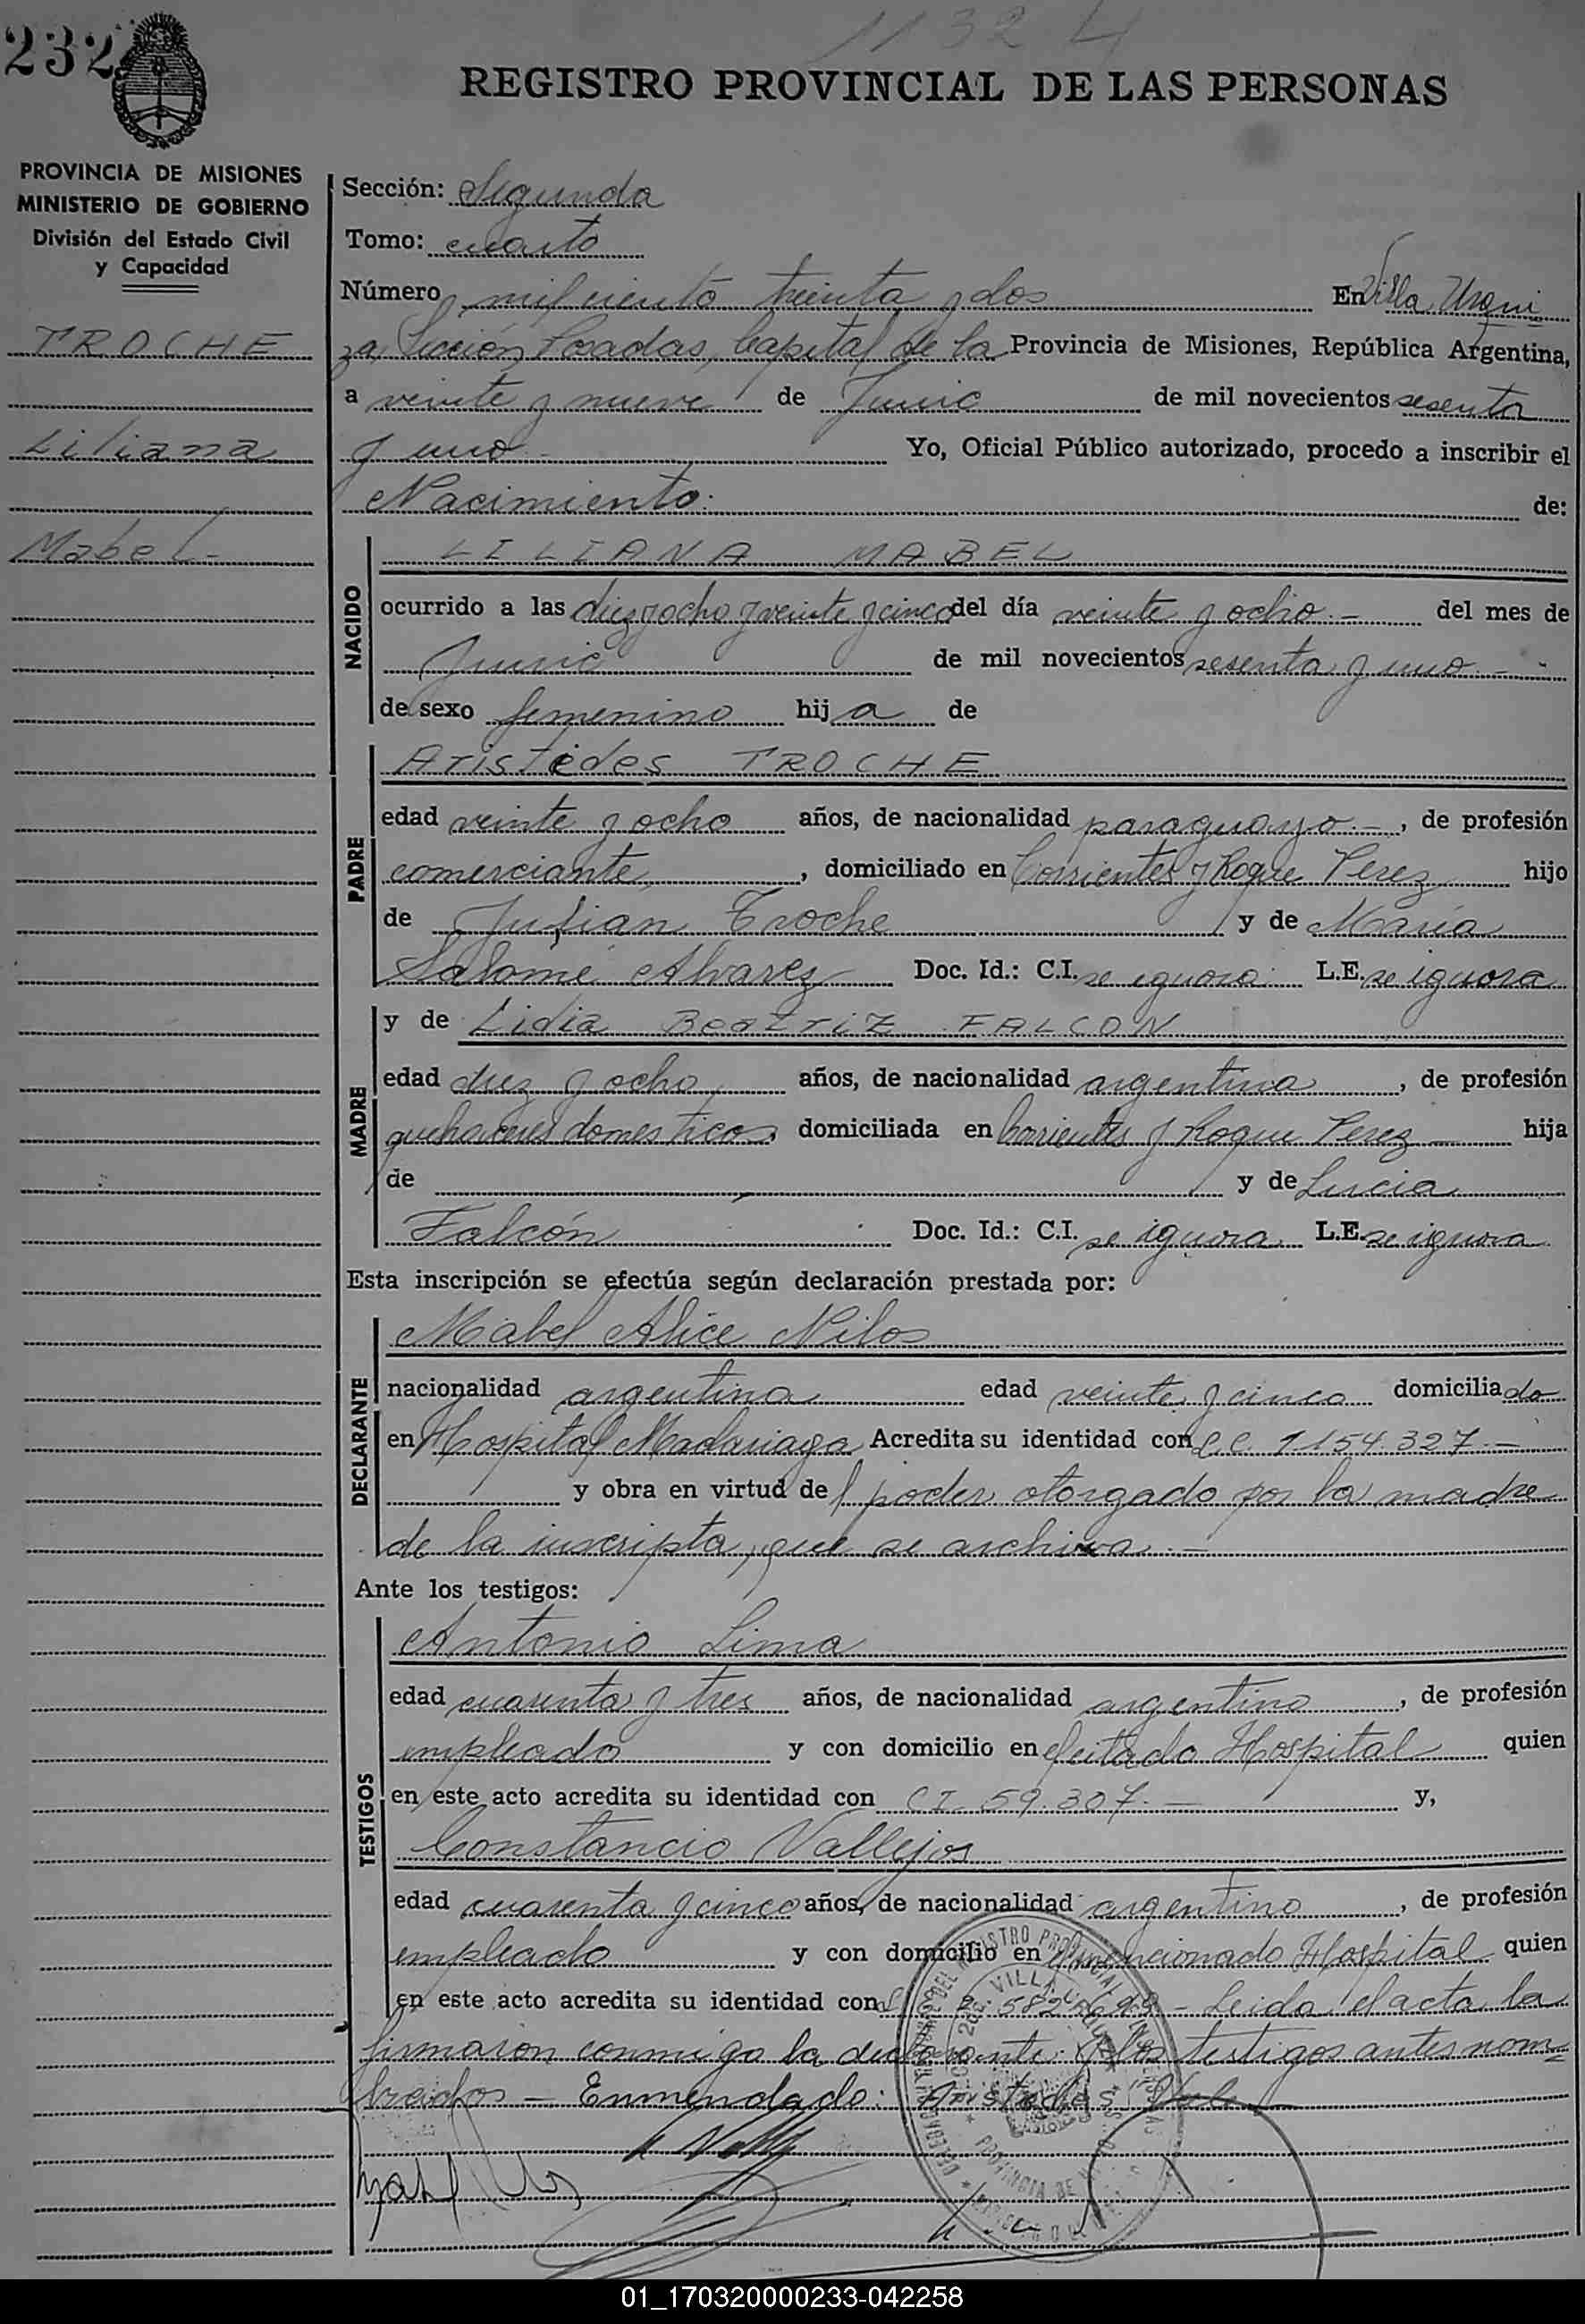 1132 4
232
REGISTRO PROVINCIAL DE LAS PERSONAS
PROVINCIA DE MISIONES
MINISTERIO DE GOBIERNO
División del Estado Civil
y Capacidad
TROCHE
Liliana
Mabel-
Sección: Segunda
Tomo: cuarto
Número mil ciento treinta y dos En Villa Urqui
za, Sección Posadas, Capital de la Provincia de Misiones, República Argentina,
a veinte y nueve de Junio de mil novecientos sesenta
y uno Yo, Oficial Público autorizado, procedo a inscribir el
Nacimiento. de:
NACIDO
LILIANA MABEL
ocurrido a las diez y ocho y veinte y cinco del día veinte y ocho.- del mes de
Junio de mil novecientos sesenta y uno.-
de sexo femenino hija de
PADRE
Aristides TROCHE
edad veinte y ocho años, de nacionalidad paraguayo.-, de profesión
comerciante, domiciliado en Corrientes y Roque Perez hijo
de Julian Troche y de María
Salomé Alvarez Doc. Id.: C.I. se ignora L.E. se ignora
MADRE
y de Lidia Beatriz FALCON
edad diez y ocho años, de nacionalidad argentina, de profesión
quehaceres domesticos, domiciliada en Corrientes y Roque Perez hija
de y de Lucia
Falcón Doc. Id.: C.I. se ignora L.E. se ignora
Esta inscripción se efectúa según declaración prestada por:
DECLARANTE
Mabel Alice Nilos
nacionalidad argentina edad veinte y cinco domiciliada
en Hospital Madariaga Acredita su identidad con 1154.327.-
y obra en virtud del poder otorgado por la madre
de la inscripta, que se archiva.-
Ante los testigos:
TESTIGOS
Antonio Lima
edad cuarenta y tres años, de nacionalidad argentino, de profesión
empleado y con domicilio en el citado Hospital quien
en este acto acredita su identidad con CI 59.307.- y,
Constancio Vallejos
edad cuarenta y cinco años, de nacionalidad argentino, de profesión
empleado y con domicilio en mencionado Hospital quien
en este acto acredita su identidad con - Leida el acta la
firmaron conmigo la declarante y los testigos antes nom=
brados - Enmendado: Aristides: Vale
01_170320000233-042258